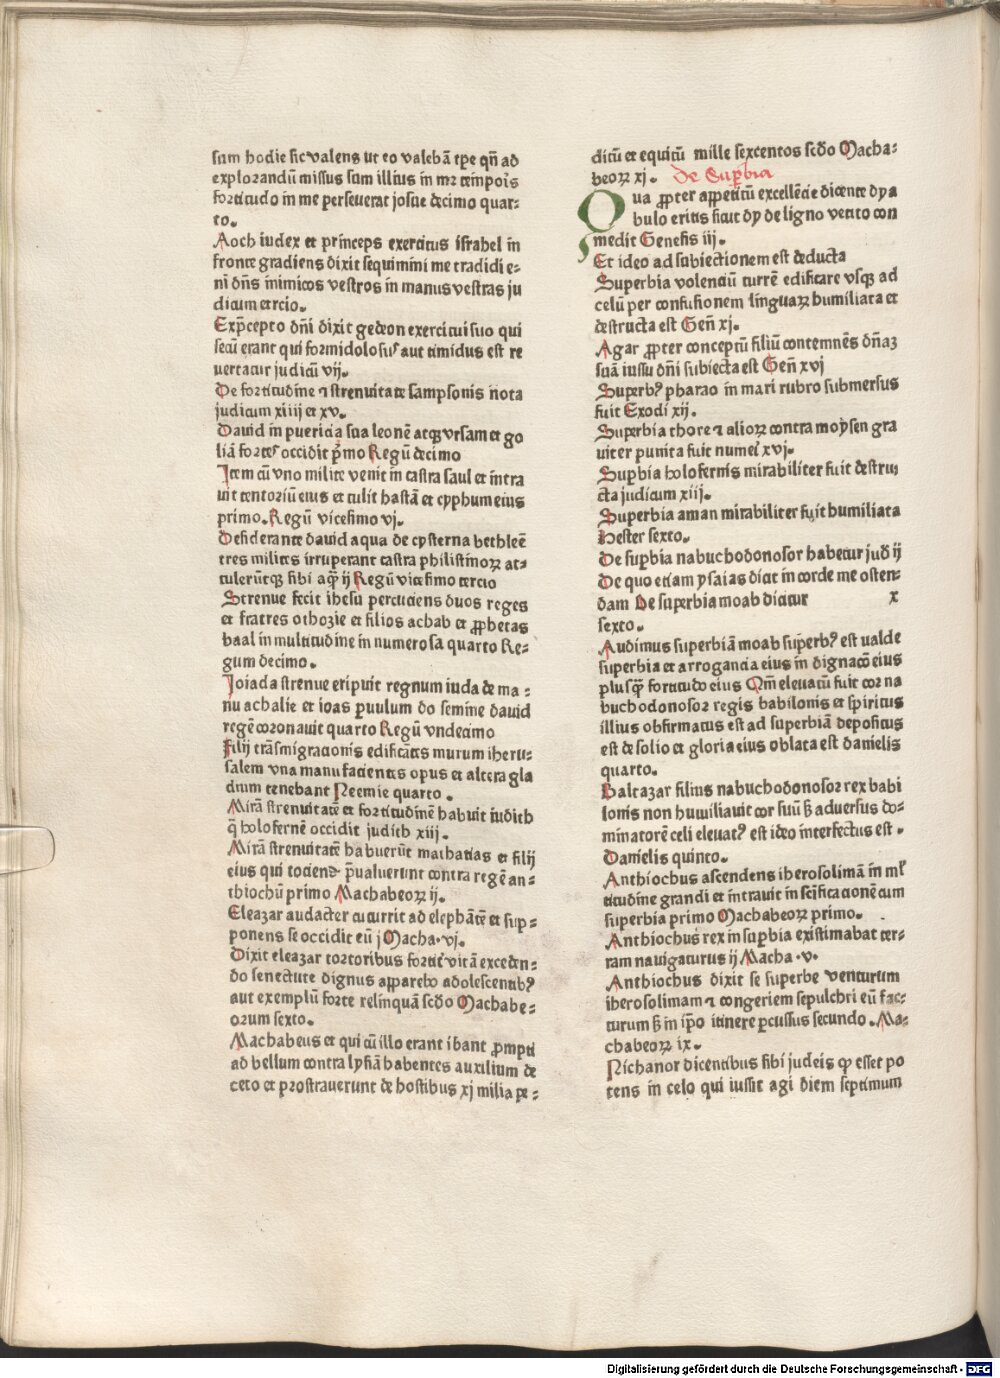 sum hodie sic valens ut eo valebā tꝑe qñ ad
explorandū missus sum illius in me tempoꝛis
fortitudo in me perseuerat josue decimo quar-
to.
Aoch iudex et princeps exercitus israhel in
fronte gradiens dixit sequimini me tradidi e-
ni dñs inimicos vestros in manus vestras ju
dicum tercio.
Exp̄cepto dñi dixit gedeon exercitui suo qui
secū erant qui formidolosꝰ aut timidus est re
uertatur judicū vij.
De fortitudine ⁊ strenuitate sampsonis nota
judicum xiiij et xv.
Dauid in puericia sua leonē atqꝫ vrsam et go
liā fortes occidit p̄mo Regū decimo
Item cū vno milite venit in castra saul et intra
uit tentoriū eius et tulit hastā et cyphum eius
primo. Regū vicesimo vj.
Desiderante dauid aqua de cysterna bethleē
tres milites irruperant castra philistinoꝝ at-
tulerūtqꝫ sibi aq̄ꝫ ij Regū vicesimo tercio
Strenue fecit ihesu percuciens duos reges
et fratres othozie et filios achab et ꝓphetas
baal in multitudine in numerosa quarto Re-
gum decimo.
Joiada strenue eripuit regnum iuda de ma-
nu athalie et ioas puulum do semine dauid
regē coronauit quarto Regū vndecimo
Filij trāsmigracionis edificātes murum iheru-
salem vna manu facientes opus et altera gla
dium tenebant Neemie quarto.
Mirā strenuitatē et fortitudinē habuit iudith
q̄ holofernē occidit judith xiij.
Mirā strenuitatē habuerūt mathatias et filij
eius qui tociens p̄ualuerunt contra regē an-
thiochū primo Machabeoꝝ ij.
Eleazar audacter cucurrit ad elephātē et sup-
ponens se occidit eū j Macha. vj.
Dixit eleazar tortoribus fortit̉ vitā exceden-
do senectute dignus apparebo adolescentibꝰ
aut exemplū forte relinquā scd̄o Machabe-
orum sexto.
Machabeus et qui cū illo erant ibant ꝓmpti
ad bellum contra lysiā habentes auxilium de
celo et prostrauerunt de hostibus xj milia pe-
ditū et equitū mille sexcentos scd̄o Macha-
beoꝝ xj.
de Suꝑbia
Qua ꝓpter appetitū excellēcie dicente dya
bulo eritis sicut dy de ligno vetito con
medit Genesis iij.
Et ideo ad subiectionem est deducta
Superbia volenciū turrē edificare vsqꝫ ad
celū per confusionem linguaꝝ humiliata et
destructa est Geñ xj.
Agar ꝓpter conceptū filiū contemnēs dñaꝫ
suā iussu dñi subiecta est Geñ xvj
Superbꝰ pharao in mari rubro submersus
fuit Exodi xij.
Superbia chore ⁊ alioꝝ contra moysen gra
uiter punita fuit numeꝛ xvj.
Suꝑbia holofernis mirabiliter fuit destru
cta judicum xiij.
Superbia aman mirabiliter fuit humiliata
Hester sexto.
De suꝑbia nabuchodonosor habetur jud ij
De quo etiam ysaias dicit in corde me osten-
dam De superbia moab dicitur x
sexto.
Audimus superbiā moab superbꝰ est ualde
superbia et arrogancia eius in dignacō eius
plusq̄ꝫ fortitudo eius Qm̄ eleuatū fuit cor na
buchodonosor regis babilonis et spiritus
illius obfirmatus est ad superbiā depositus
est de solio et gloria eius oblata est danielis
quarto.
Baltazar filius nabuchodonosor rex babi
lonis non humiliauit cor suū sꝫ aduersus do-
minatorē celi eleuatꝰ est ideo interfectus est.
Danielis quinto.
Anthiochus ascendens iherosolimā in ml̉
titudine grandi et intrauit in scificacionē cum
superbia primo Machabeoꝝ primo.
Anthiochus rex in suꝑbia existimabat ter-
ram nauigaturus ij Macha. v.
Anthiochus dixit se superbe venturum
iherosolimam ⁊ congeriem sepulchri eū fac-
turum sꝫ in ip̄o itinere ꝑcussus secundo. Ma-
chabeoꝝ ix.
Nichanor dicentibus sibi judeis ꝙ esset po
tens in celo qui iussit agi diem septimum
Digitalisierung gefördert durch die Deutsche Forschungsgemeinschaft - DFG